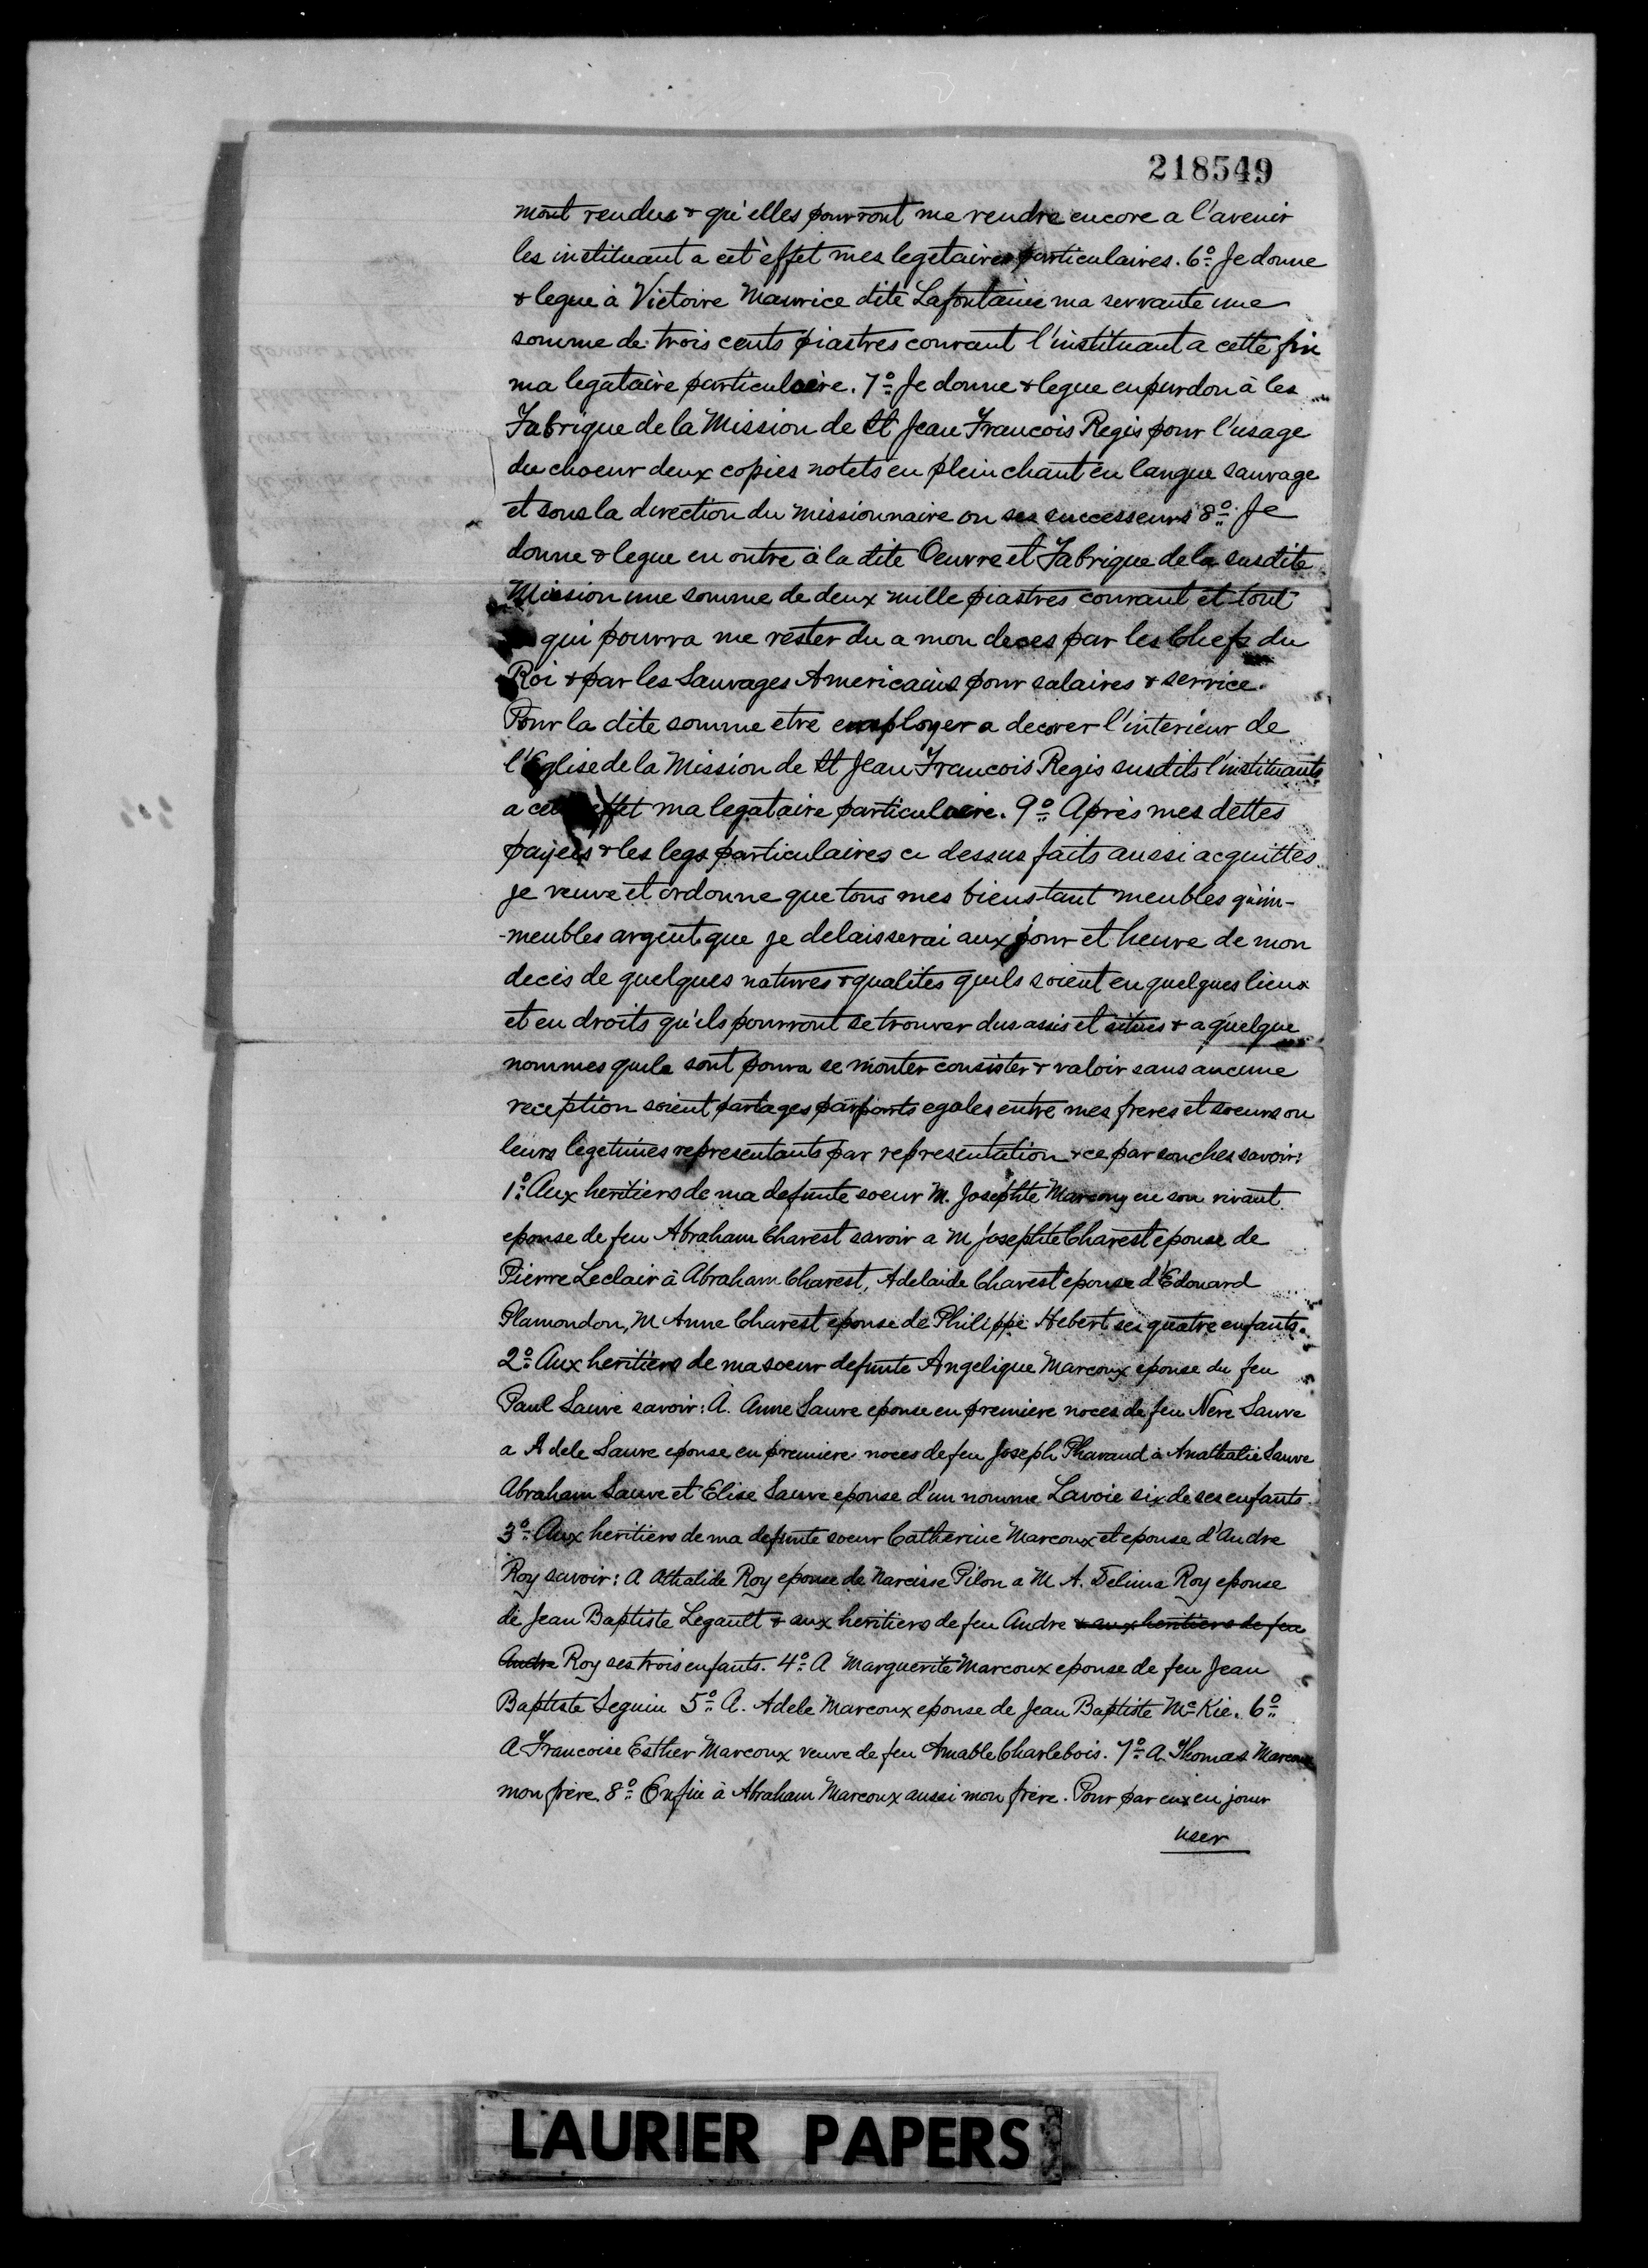 218549
mont rendus & qu'elles pourront me rendre encore a l'avenir
les instituant a cet effet mes legetaires particulaires. 6º Je donne
& legue à Victoire Maurice dite Lafontaine ma servante une
somme de trois cents piastres courant l'instituant a cette fin
ma legataire particulaire. 7º Je donne & legue en pur don à les
Fabrique de la Mission de St Jean Francois Regis pour l'usage
du choeur deux copies notets en plein chant en langue sauvage
et sous la direction du missionnaire ou ses successeurs 8º Je
donne & legue en outre à la dite Oeuvre et Fabrique de la susdite
Mission une somme de deux mille piastres courant et tout
qui pourra me rester du a mon deces par les Chefs du
Roi & par les Sauvages Americains pour salaires & service.
Pour la dite somme etre employer a decorer l'interieur de
l'Eglise de la Mission de St Jean Francois Regis susdits l'instituants
a cet effet ma legataire particulaire. 9º Après mes dettes
payeés & les legs particulaires ci dessus faits aussi acquittes
je veuve et ordonne que tous mes biens tant meubles qu'im-
-meubles argent que je delaisserai aux jour et heure de mon
decès de quelques natures & qualites quils soient en quelques lieux
et en droits qu'ils pourront se trouver dus assis et situes & a quelque
nommes quils sont poura se monter consister & valoir sans aucune
reception soient partages par parts egales entre mes freres et soeurs ou
leurs legetimes representants par representation & ce par souches savoir:
1º Aux heritiers de ma defunte soeur M. Josephte Marcoux en son vivant
epouse de feu Abraham Charest savoir a M Josephte Charest epouse de
Pierre Leclair à Abraham Charest, Adelaide Charest epouse d'Edouard
Plamondon, M Anne Charest epouse de Philippe Hebert ses quatre enfants.
2º Aux heritiers de ma soeur defunte Angelique Marcoux epouse du feu
Paul Sauve savoir: A. Anne Sauve epouse en premiere noces de feu Nere Sauve
a Adele Sauve epouse en premiere noces de feu Joseph Pharaud à Anathalie Sauve
Abraham Sauve et Elise Sauve epouse d'un nomme Lavoie six de ses enfants
3º Aux heritiers de ma defunte soeur Catherine Marcoux et epouse d'Andre
Roy savoir: A Athalide Roy epouse de Narcisse Pilon a M A. Delima Roy epouse
de Jean Baptiste Legault & aux heritiers de feu Andre & aux heritiers de feu
Andre Roy ses trois enfants. 4º A Marguerite Marcoux epouse de feu Jean
Baptiste Seguin 5º A. Adele Marcoux epouse de Jean Baptiste Mc Kie. 6º
A Francoise Esther Marcoux veuve de feu Amable Charlebois. 7º A Thomas Marcoux
mon frère. 8º Enfin à Abraham Marcoux aussi mon frère. Pour par eux en jouir
user
LAURIER PAPERS